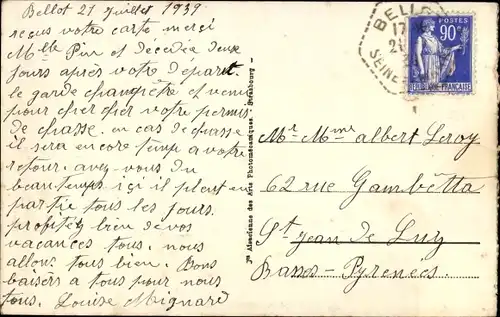 Bellot 21 juillet 1939
reçus votre carte merci
Mlle Pin et decédée deux
jours après votre départ.
le garde champêtre et venu
pour chercher votre permis
de chasse. en cas de chasse
il sera encore temp a votre
retour. avez vous du
beau temps ici il pleut en
partie tous les jours.
profitéz bien de vos
vacances tous. nous
allons tous bien. Bons
baisérs a tous pour nous
tous. Louise Mignard
Je Alsacienne des Arts Photomécaniques. Strasbourg
BELLOT
17
21
SEINE
POSTES
90c
REPUBLIQUE-FRANÇAISE
Mr Mme albert Leroy
62 rue Gambétta
St jean de Luz
Basses-Pyrenees.